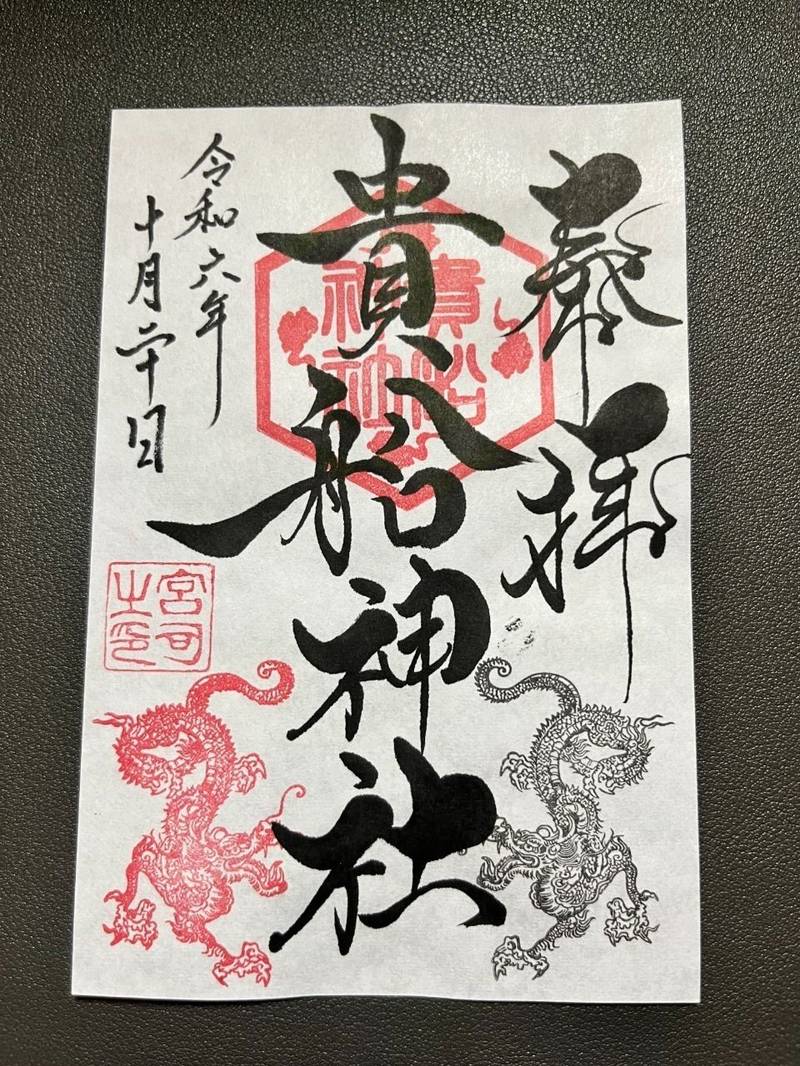 奉拝
貴船神社
貴船神社
令和六年
十月二十日
宮司之印